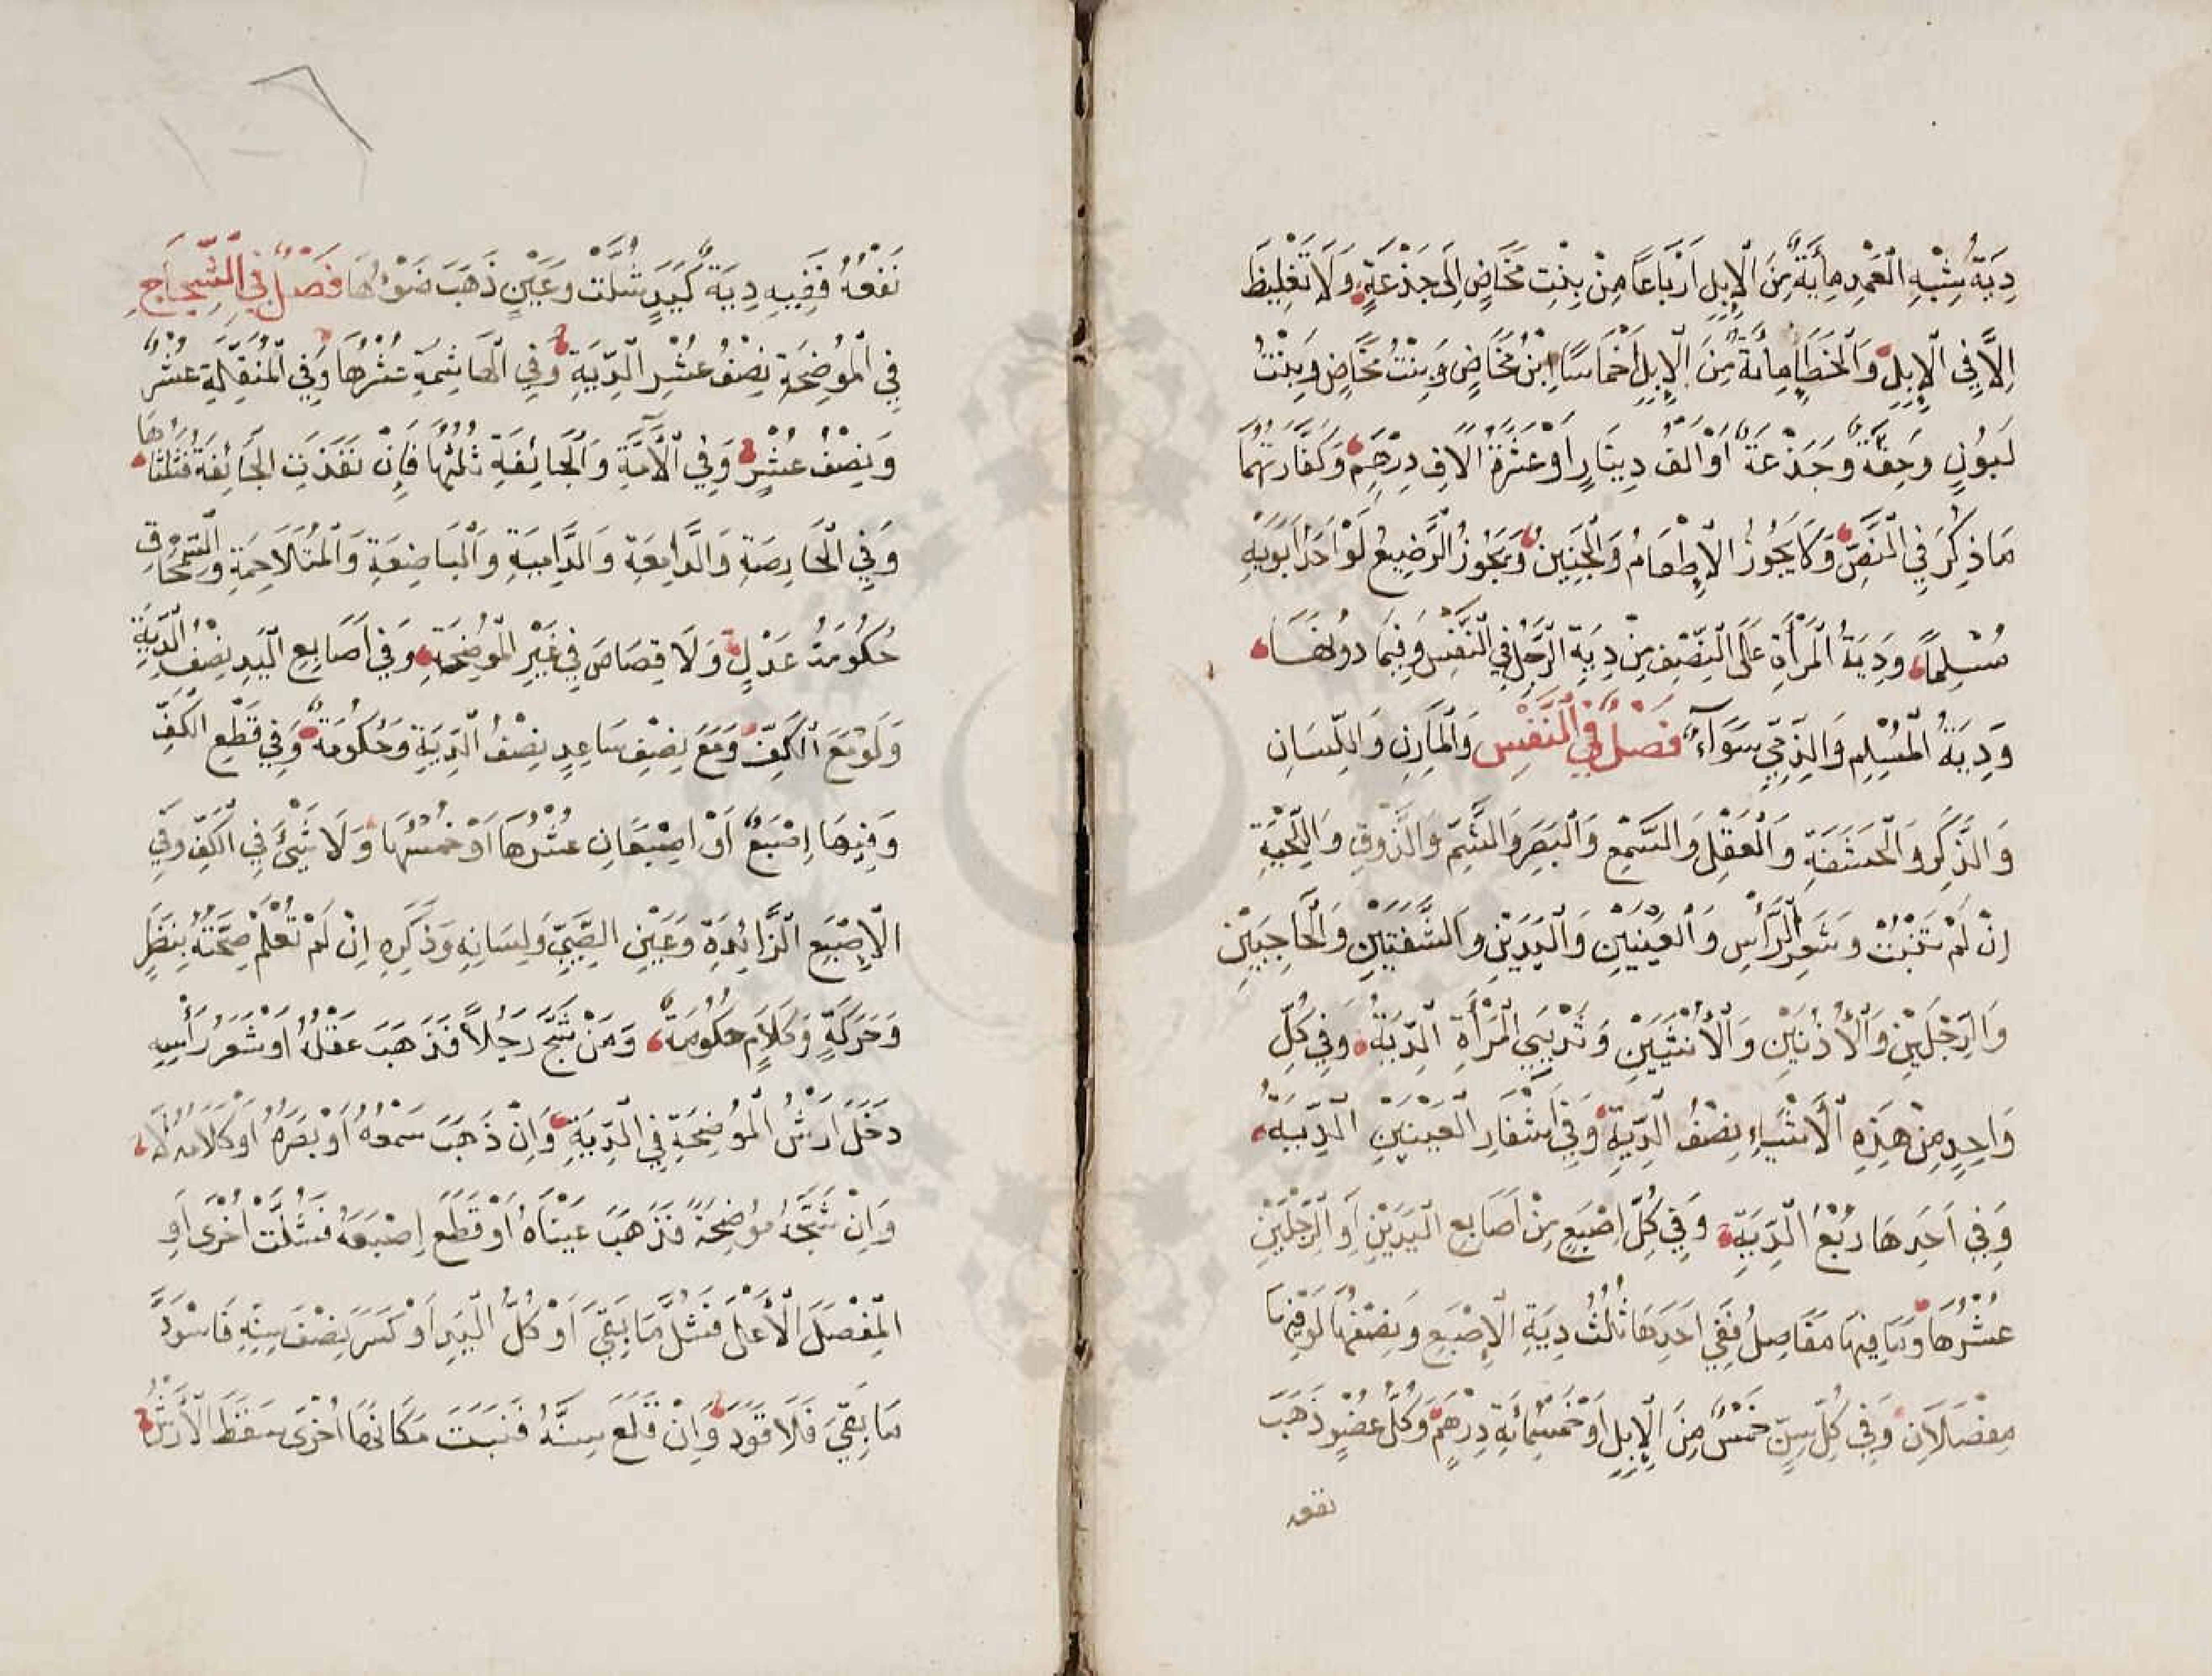 دِيَةُ شِبْهِ الْعَمْدِ مِأَيَةٌ مِنَ الْإِبِلِ اَرْبَاعًا مِنْ بِنْتِ مَخَاضٍ اِلَى جَذَعَةٍ وَلَا تَغْلِيظَ
اِلَّا فِي الْإِبِلِ وَالْخَطَإِ مِائَةٌ مِنَ الْإِبِلِ اَخْمَاسًا اِبْنُ مَخَاضٍ وَبِنْتُ مَخَاضٍ وَبِنْتُ
لَبُوْنٍ وَحِقَّةٌ وَجَذَعَةٌ اَوْ اَلْفُ دِينَارٍ اَوْ عَشْرَةُ اٰلَافِ دِرْهَمٍ وَكَفَّارَتُهُمَا
مَا ذُكِرَ فِي النَّصِّ وَلَا يَجُوْزُ الْإِطْعَامُ وَالْجَنِينُ وَيَجُوْزُ الرَّضِيعُ لَوْ اَحَدُ اَبَوَيْهِ
مُسْلِمًا وَدِيَةُ الْمَرْأَةِ عَلَى النِّصْفِ مِنْ دِيَةِ الرَّجُلِ فِي النَّفْسِ وَفِيمَا دُونَهَا
وَدِيَةُ الْمُسْلِمِ وَالذِّمِّيِّ سَوَآءٌ فَصْلٌ فِي النَّفْسِ وَالْمَارِنِ وَاللِّسَانِ
وَالذَّكَرِ وَالْحَشَفَةِ وَالْعَقْلِ وَالسَّمْعِ وَالْبَصَرِ وَالشَّمِّ وَالذَّوْقِ وَاللِّحْيَةِ
اِنْ لَمْ تَنْبُتْ وَشَعْرِ الرَّأْسِ وَالْعَيْنَيْنِ وَالْيَدَيْنِ وَالشَّفَتَيْنِ وَالْحَاجِبَيْنِ
وَالرِّجْلَيْنِ وَالْأُذُنَيْنِ وَالْأُنْثَيَيْنِ وَثَدْيَيِ الْمَرْأَةِ الدِّيَةُ وَفِي كُلِّ
وَاحِدٍ مِنْ هٰذِهِ الْأَشْيَاءِ نِصْفُ الدِّيَةِ وَفِي اَشْفَارِ الْعَيْنَيْنِ الدِّيَةُ
وَفِي اَحَدِهَا رُبْعُ الدِّيَةِ وَفِي كُلِّ اِصْبَعٍ مِنْ اَصَابِعِ الْيَدَيْنِ اَوِ الرِّجْلَيْنِ
عُشْرُهَا وَمَا فِيهَا مَفَاصِلُ فَفِي اَحَدِهَا ثُلُثُ دِيَةِ الْإِصْبَعِ وَنِصْفُهَا لَوْ فِيهَا
مِفْصَلَانِ وَفِي كُلِّ سِنٍّ خَمْسٌ مِنَ الْإِبِلِ اَوْ خَمْسُمِائَةِ دِرْهَمٍ وَكُلُّ عُضْوٍ ذَهَبَ
نفعه
نَفْعُهُ فَفِيهِ دِيَةٌ كَيَدٍ شُلَّتْ وَعَيْنٍ ذَهَبَ ضَوْءُهَا فَصْلٌ فِي الشِّجَاجِ
فِي الْمُوْضِحَةِ نِصْفُ عُشْرِ الدِّيَةِ وَفِي الْهَاشِمَةِ عُشْرُهَا وَفِي الْمُنَقِّلَةِ عُشْرٌ
وَنِصْفُ عُشْرٍ وَفِي الْآمَّةِ وَالْجَائِفَةِ ثُلُثُهَا فَاِنْ نَفَذَتِ الْجَائِفَةُ فَثُلُثَاهَا
وَفِي الْحَارِصَةِ وَالدَّامِعَةِ وَالدَّامِيَةِ وَالْبَاضِعَةِ وَالْمُتَلَاحِمَةِ وَالسِّمْحَاقِ
حُكُوْمَةُ عَدْلٍ وَلَا قِصَاصَ فِي غَيْرِ الْمُوْضِحَةِ وَفِي اَصَابِعِ الْيَدِ نِصْفُ الدِّيَةِ
وَلَوْ مَعَ الْكَفِّ وَمَعَ نِصْفِ سَاعِدٍ نِصْفُ الدِّيَةِ وَحُكُوْمَةٌ وَفِي قَطْعِ الْكَفِّ
وَفِيهَا اِصْبَعٌ اَوْ اِصْبَعَانِ عُشْرُهَا اَوْ خُمْسُهَا وَلَا شَيْئَ فِي الْكَفِّ وَفِي
الْإِصْبَعِ الزَّائِدَةِ وَعَيْنِ الصَّبِيِّ وَلِسَانِهِ وَذَكَرِهِ اِنْ لَمْ تُعْلَمْ صِحَّتُهُ بِنَظَرٍ
وَحَرَكَةٍ وَكَلَامٍ حُكُوْمَةٌ وَمَنْ شَجَّ رَجُلًا فَذَهَبَ عَقْلُهُ اَوْ شَعْرُ رَأْسِهِ
دَخَلَ اَرْشُ الْمُوْضِحَةِ فِي الدِّيَةِ وَاِنْ ذَهَبَ سَمْعُهُ اَوْ بَصَرُهُ اَوْ كَلَامُهُ لَا
وَاِنْ شَجَّهُ مُوْضِحَةً فَذَهَبَ عَيْنَاهُ اَوْ قَطَعَ اِصْبَعَهُ فَشُلَّتْ اُخْرٰى اَوِ
الْمِفْصَلَ الْأَعْلٰى فَشُلَّ مَا بَقِيَ اَوْ كُلُّ الْيَدِ اَوْ كَسَرَ نِصْفَ سِنِّهِ فَاسْوَدَّ
مَا بَقِيَ فَلَا قَوَدَ وَاِنْ قَلَعَ سِنَّهُ فَنَبَتَ مَكَانَهَا اُخْرٰى سَقَطَ الْأَرْشُ